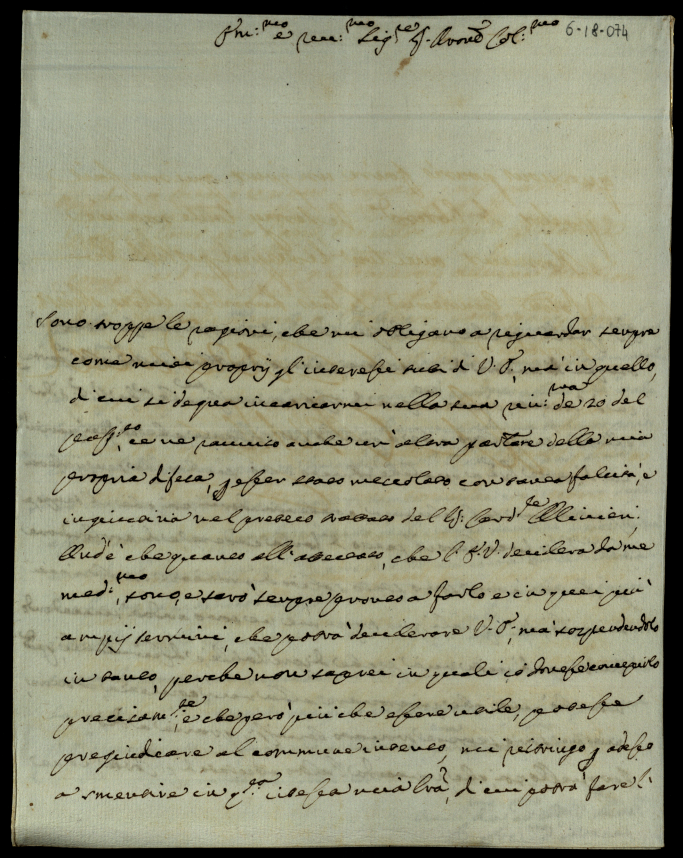 Ill:mo e rev:mo Sig:re P.ron Col:mo 6-18-074
Sono troppe le ragioni, che mi obligano a riguardar sempre
come miei proprij gl'interessi suoi di V. S., ma in quello,
di cui si degna incaricarmi nella sua riv:ma de 20 del
pass:to, ce ne ravviso anche un'altra partire della mia
propria difesa, p esser stato mescolato con tanta falsità, e
ingiustizia nel preteso trattato del S: Card:le
che quanto all'attestato, che V. S. desidera da me
med:mo, sono, e sarò sempre pronto a farlo e in quei più
ampij termini, che potrà desiderare V. S., ma sospendendolo
in tanto, perche non saprei in quali io dovesse concepirlo
precisam:te, e che però più che essere utile, potesse
pregiudicare al commune intento, mi ristringo p adesso
a smentire in q:ta istessa mia lra, di cui potrà fare l'